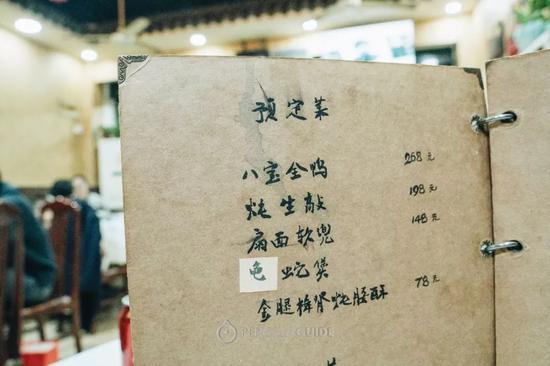 预定菜
八宝全鸭 268元
炖生敲 198元
扇面软兜 148元
龟蛇煲
金腿棒骨炖酥 78元
GUIDE